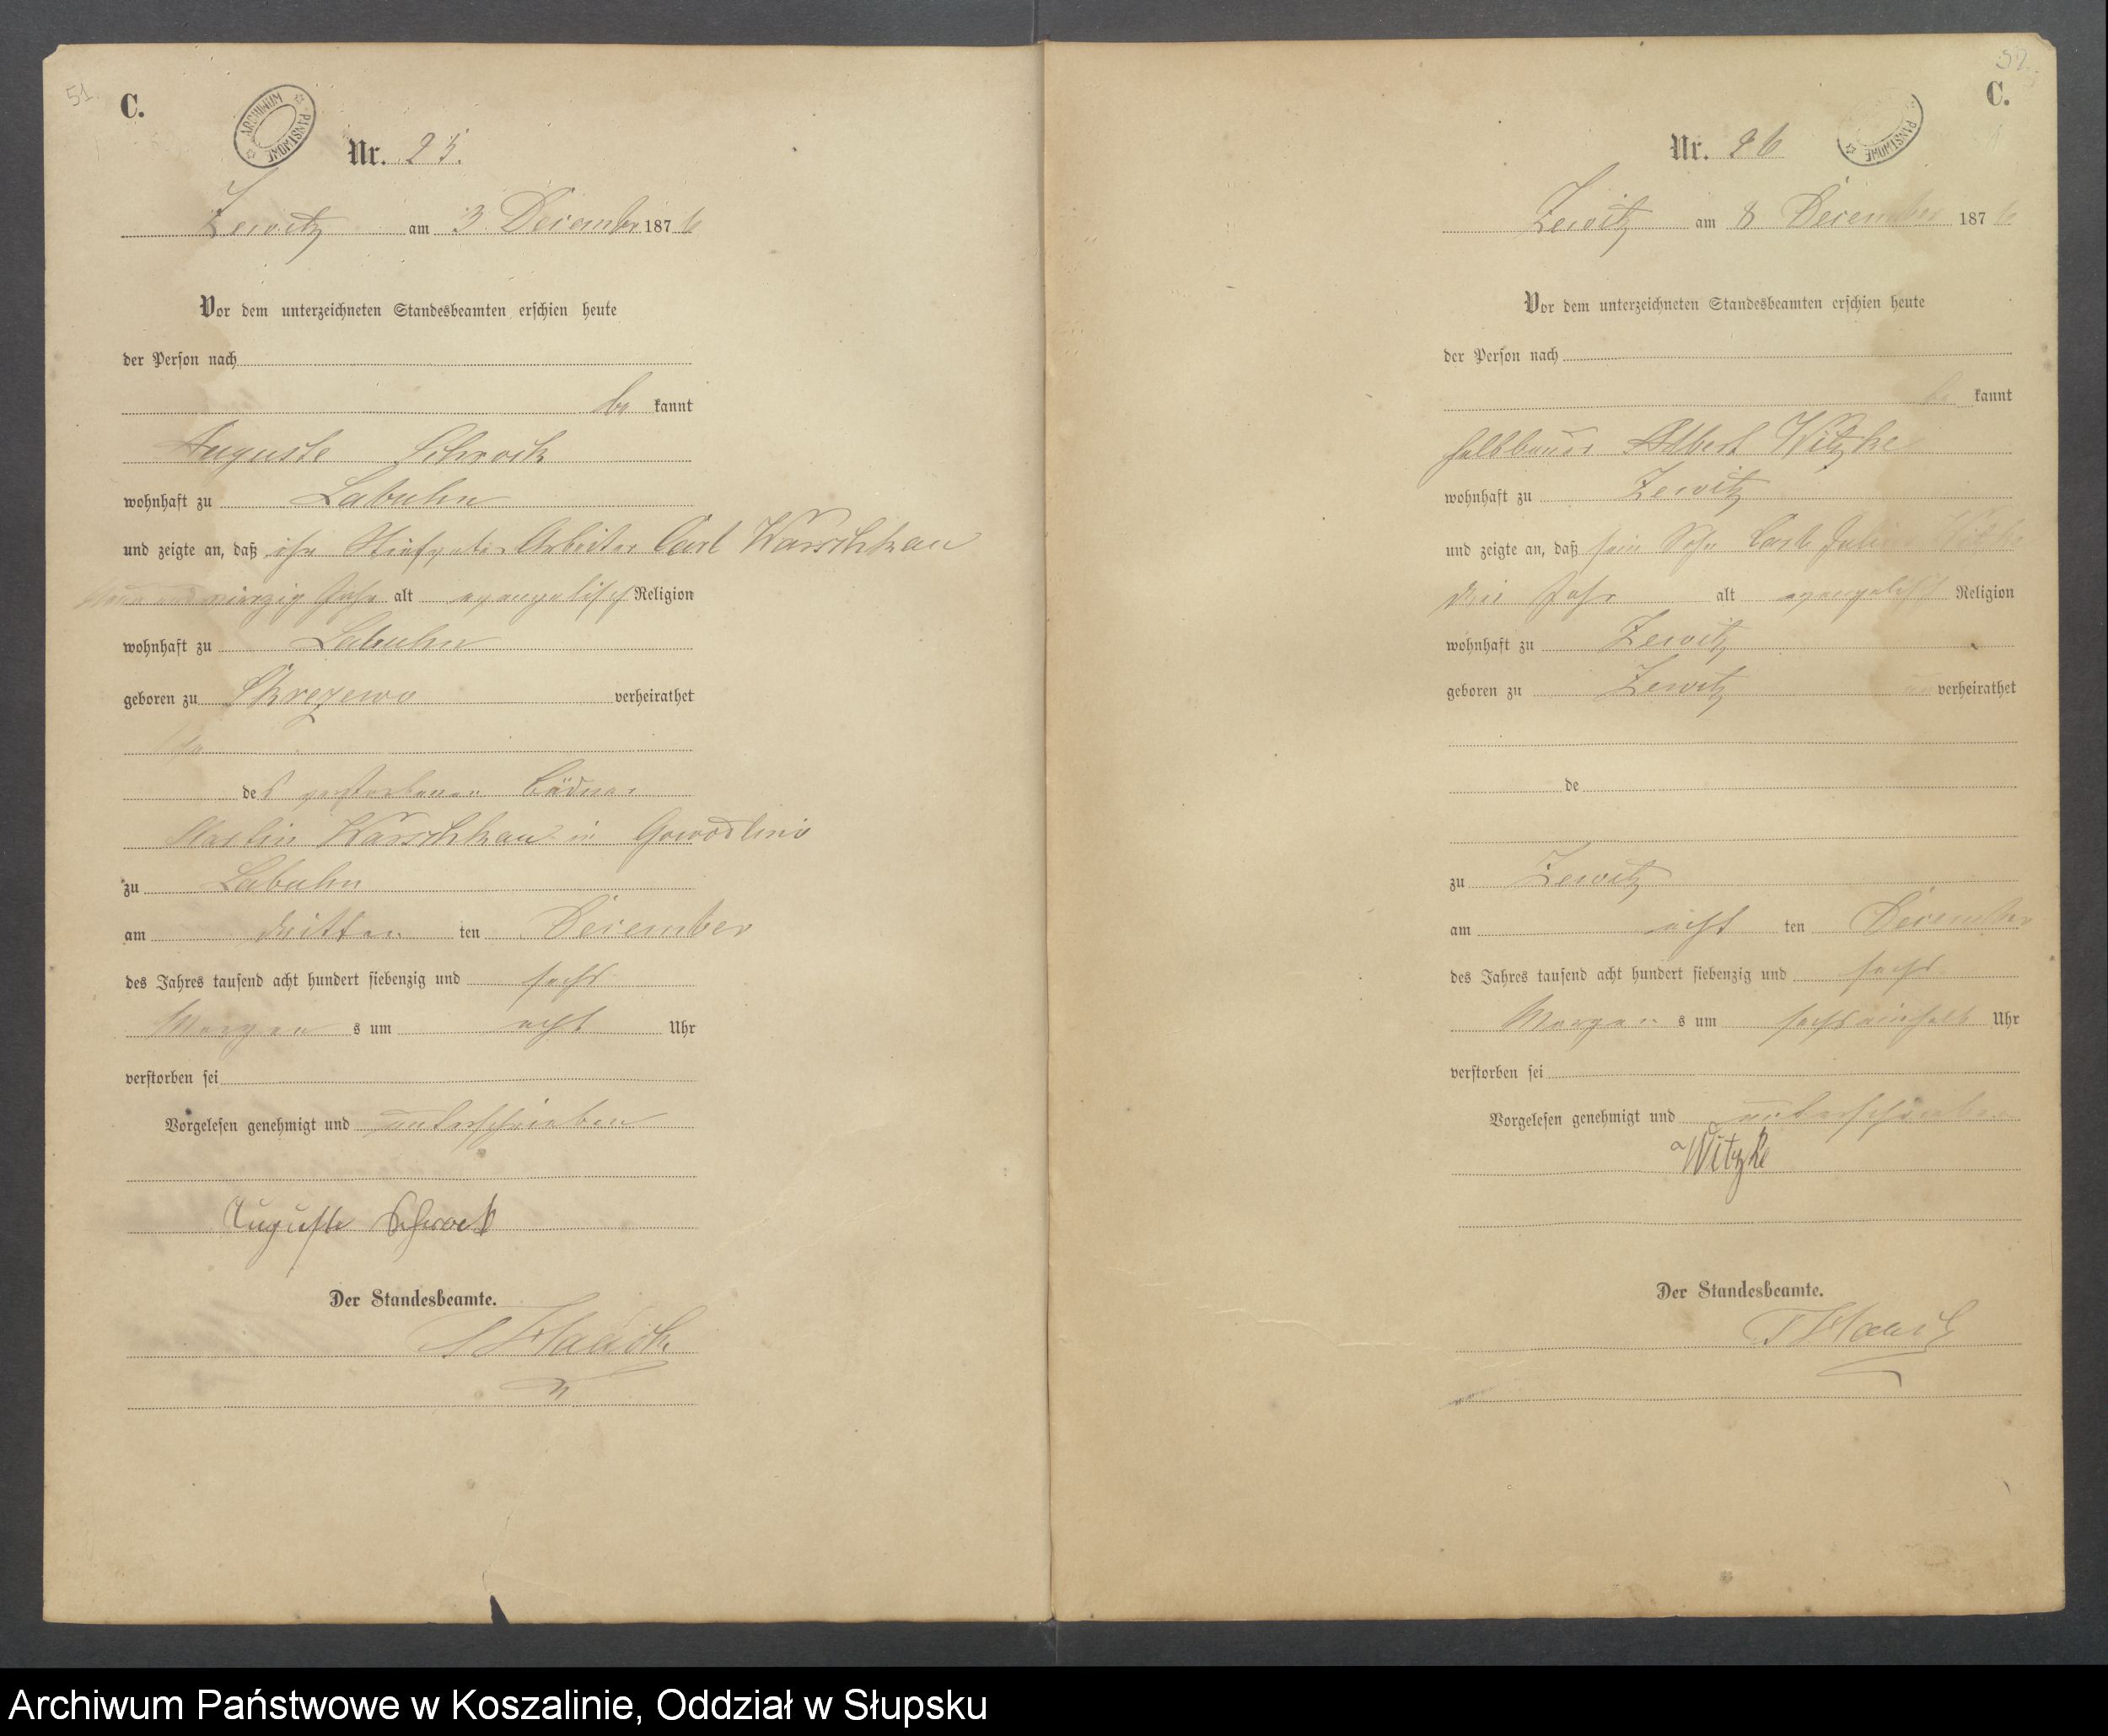 51
C.
ARCHIWUM PAŃSTWOWE
Nr. 25.
Zewitz am 3. December 1876
Vor dem unterzeichneten Standesbeamten erschien heute
der Person nach
be kannt
Auguste Schrock
wohnhaft zu Labuhn
und zeigte an, daß ihr Stiefvater Arbeiter Carl Warschkau
und vierzig Jahr alt evangelisch Religion
wohnhaft zu Labuhn
geboren zu Skrezewo verheirathet
des verstorbenen Büdner
Martin Warschkau in Gowodlino
zu Labuhn
am dritten ten December
des Jahres tausend acht hundert siebenzig und sechs
Morgen s um acht Uhr
verstorben sei
Vorgelesen genehmigt und unterschrieben
Auguste Schrock
Der Standesbeamte.
52
C.
PAŃSTWOWE
Nr. 26
Zewitz am 8 December 1876
Vor dem unterzeichneten Standesbeamten erschien heute
der Person nach
be kannt
Halbbauer Albert Witzke
wohnhaft zu Zewitz
und zeigte an, daß sein Sohn Carl Julius Witzke
drei Jahr alt evangelisch Religion
wohnhaft zu Zewitz
geboren zu Zewitz unverheirathet
de
zu Zewitz
am acht ten December
des Jahres tausend acht hundert siebenzig und sechs
Morgen s um sechseinhalb Uhr
verstorben sei
Vorgelesen genehmigt und unterschrieben
Witzke
Der Standesbeamte.
Archiwum Państwowe w Koszalinie, Oddział w Słupsku